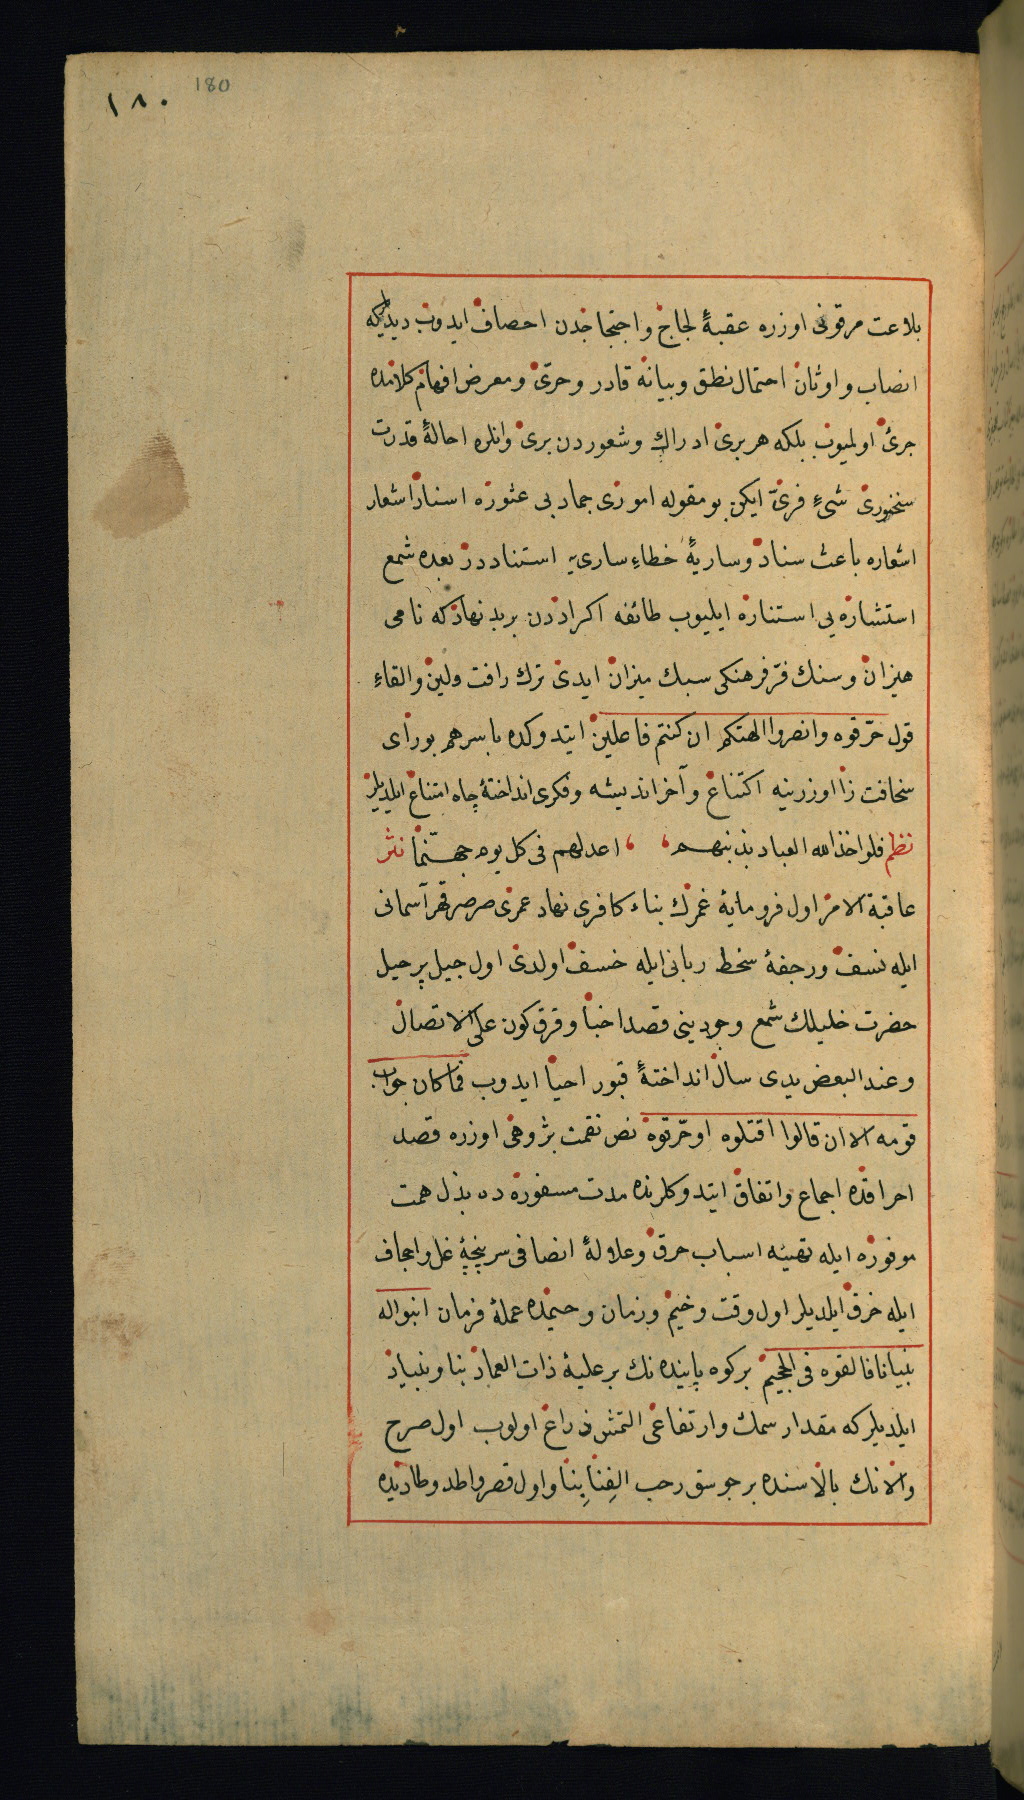 ١٨٠ 180
بلاعت مرقوفی اوزره عقبهٔ لجاج و احتجاجدن احصاف ایدوب دیدیکه
انصاب و اوثان احتمال نطق و بیانه قادر و حری و معرض افهام کلامده
جرئ اولمیوب بلکه هر بری ادراک و شعوردن بری و انلره احالهٔ قدرت
سخنوری شیءٍ فریّ ایکن بو مقوله اموری جماد بی عثوره اسناد اشعار
اشعاره باعث سناد و ساریهٔ خطاءِ ساری یه استناددر بعده شمع
استشاره یی استناره ایلیوب طائفه اکراددن بربد نهادکه نامی
هیزان و سنک فرّ فرهنکی سبک میزان ایدی ترک رافت ولین و القاءِ
قول حرّقوه وانصروا الهتکم ان کنتم فاعلین ایتدوکده باسرهم بورای
سخافت زا اوزرینه اکتناع و آخر اندیشه و فکری انداختهٔ چاه امتناع ایلدیلر
نظم فلو اخذ الله العباد بذنبهم ، ، اعد لهم فی کل یوم جهنّما نثر
عاقبة الامر اول فرومایهٔ غمرک بناء کافری نهاد عمری صرصر قهر آسمانی
ایله نسف و رجفهٔ سخط ربانی ایله خسف اولدی اول جیل پر حیل
حضرت خلیلک شمع وجودینی قصد اخبا و قرق کون علی الاتصال
و عند البعض یدی سال انداختهٔ قبور احیا ایدوب فما کان جواب
قومه الا ان قالوا اقتلوه او حرّقوه نص نقمت پژوهی اوزره قصد
احراقده اجماع و اتفاق ایتدوکلرنده مدت مسفوره ده بذل همت
موفوره ایله تهیئه اسباب حرق و علولهٔ انصافی سرپنجهٔ غل و اعجاف
ایله خرق ایلدیلر اول وقت وخیم و زمان وحیمده عملهٔ فرمان ابنوا له
بنیانا فالقوه فی الجحیم برکوه پاینده نک بر علیهٔ ذات العماد بنا و بنیاد
ایلدیلرکه مقدار سمک و ارتفاعی التمش ذراع اولوب اول صرح
والانک بالاسنده بر جوسق رحب الفِنا بِنا و اول قصر واطد وطادیده